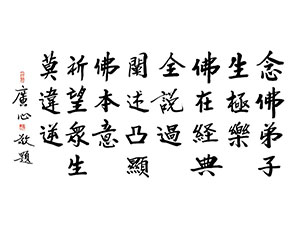 念佛弟子
生極樂
佛在經典
全說過
闡述凸顯
佛本意
祈望眾生
莫違逆
廣心敬題